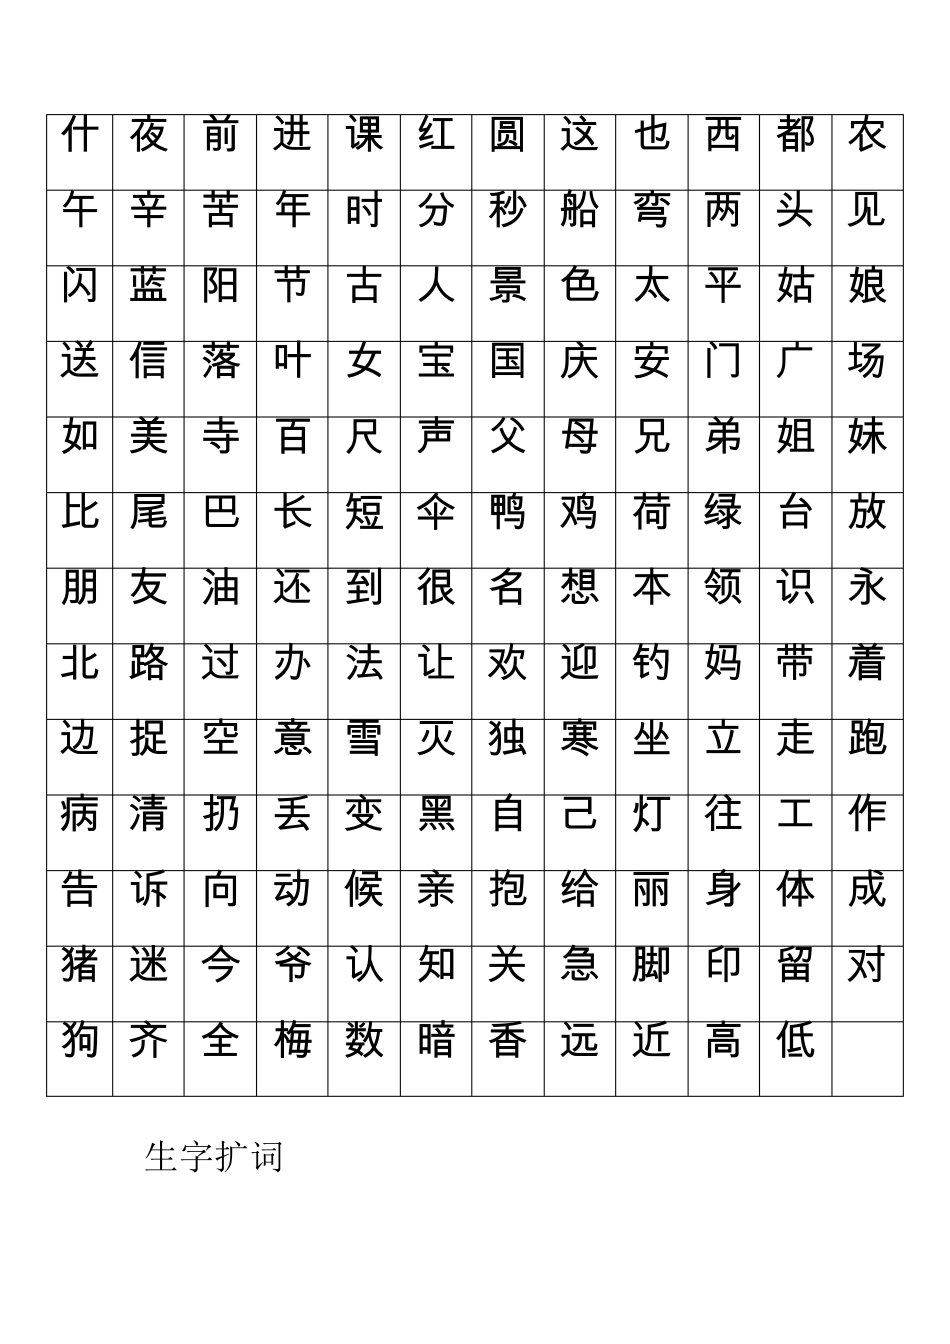 什 夜 前 进 课 红 圆 这 也 西 都 农
午 辛 苦 年 时 分 秒 船 弯 两 头 见
闪 蓝 阳 节 古 人 景 色 太 平 姑 娘
送 信 落 叶 女 宝 国 庆 安 门 广 场
如 美 寺 百 尺 声 父 母 兄 弟 姐 妹
比 尾 巴 长 短 伞 鸭 鸡 荷 绿 台 放
朋 友 油 还 到 很 名 想 本 领 识 永
北 路 过 办 法 让 欢 迎 钓 妈 带 着
边 捉 空 意 雪 灭 独 寒 坐 立 走 跑
病 清 扔 丢 变 黑 自 己 灯 往 工 作
告 诉 向 动 候 亲 抱 给 丽 身 体 成
猪 迷 今 爷 认 知 关 急 脚 印 留 对
狗 齐 全 梅 数 暗 香 远 近 高 低
生字扩词